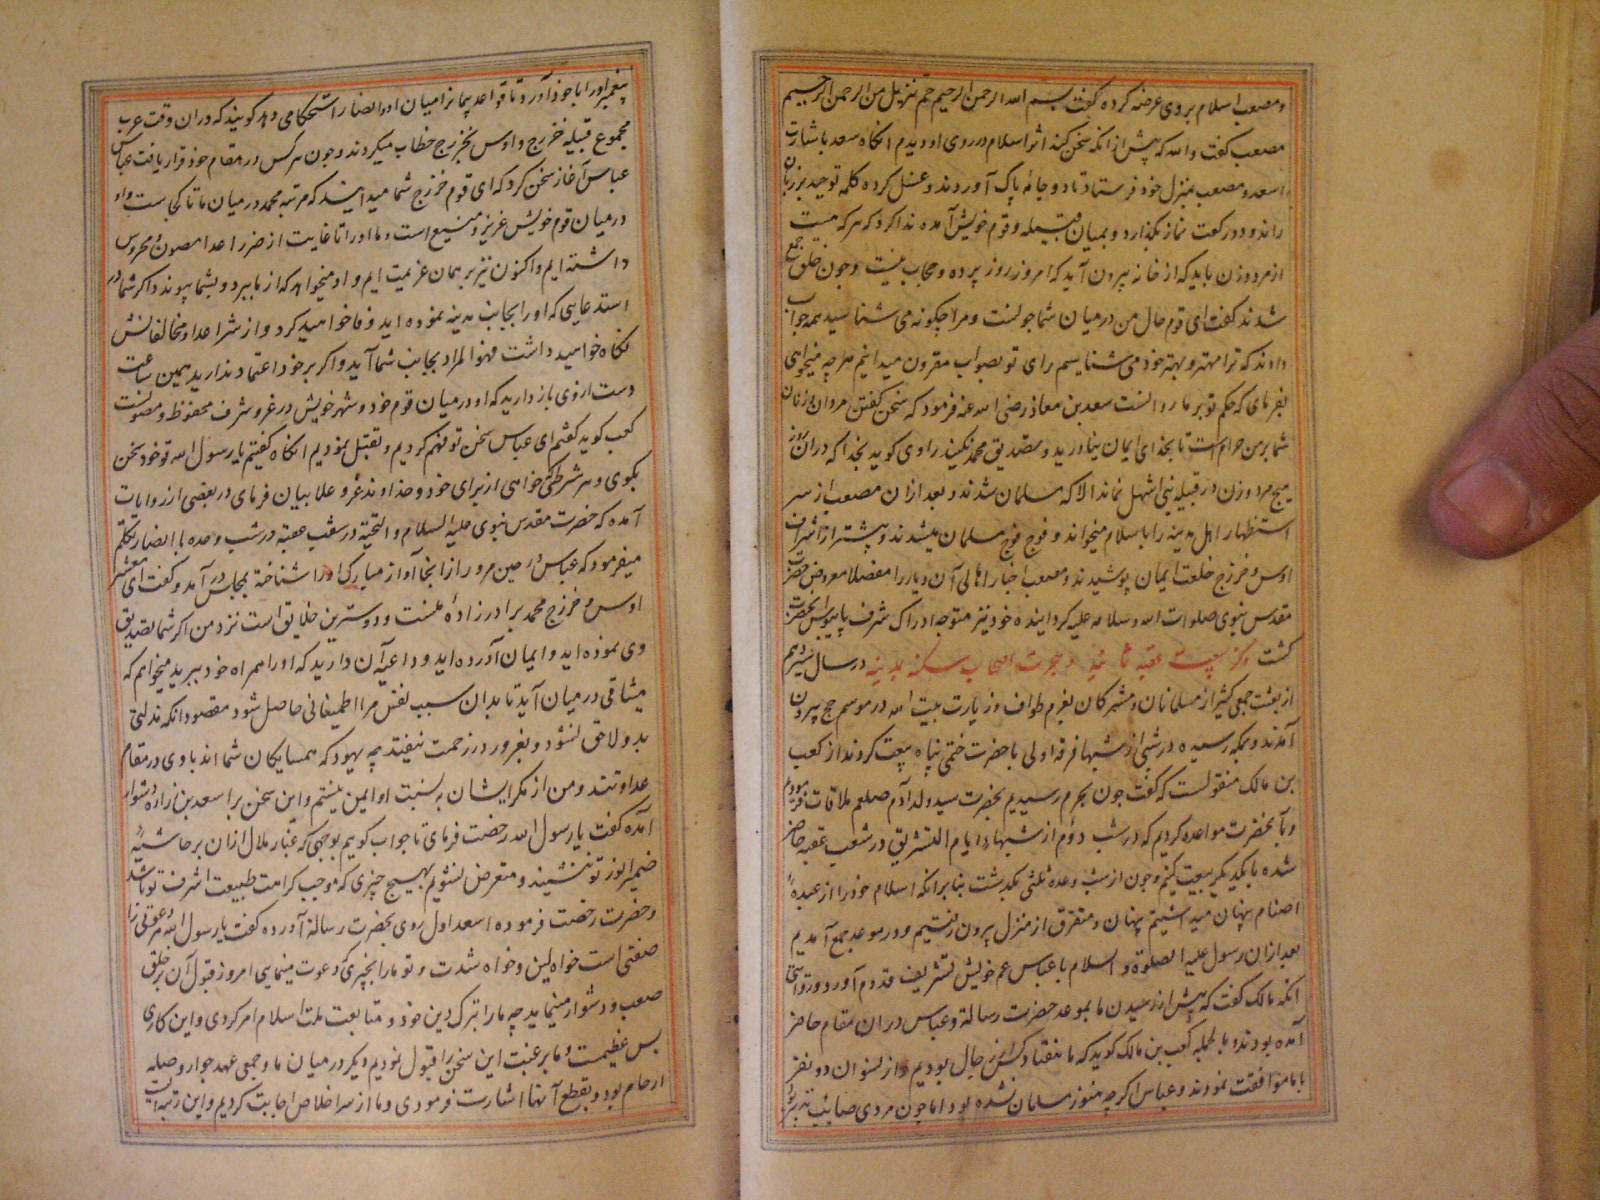 و مصعب اسلام بروی عرضه کرده گفت بسم الله الرحمن الرحیم حم تنزیل من الرحمن الرحیم
مصعب گفت والله که پیش از انکه سخن کند اثر اسلام در روی او دیدم انکاه سعد باشارت
اسعد و مصعب بمنزل خود فرستاد تا دو جامهٔ پاک آوردند و غسل کرده کلمه توحید بر زبان
راند و دو رکعت نماز بکذارد و بمیان قبیله و قوم خویش آمده ندا کرد که هر که هست
از مرد و زن باید که از خانه بیرون آید که امروز روز پرده و حجاب نیست و چون خلق جمع
شدند کفت ای قوم حال من در میان شما چونست و مرا چکونه می شناسید همه جواب
دادند که ترا مهتر و بهتر خود می شناسیم رای تو بصواب مقرون میدانیم هر چه میخواهی
بفرمای که حکم تو بر ما رواست سعد بن معاذ رضی الله عنه فرمود که سخن کفتن مردان و زنان
شما بر من حرام است تا بخدای ایمان نیاورید و تصدیق محمد نکنید راوی کوید بخدا که دران روز
هیچ مرد و زن در قبیله بنی اشهل نماند الا که مسلمان شدند و بعد ازان مصعب از سر
استظهار اهل مدینه را باسلام میخواند و فوج فوج مسلمان میشدند و بیشتر از اشراف
اوس و خزرج خلعت ایمان پوشیدند و مصعب اخبار اهالی آن دیار را مفصلا معروض حضرت
مقدس نبوی صلوات الله و سلامه علیه کردانیده خود نیز متوجه ادراک شرف پایبوس انحضرت
کشت ذکر بیعت عقبه ثانیه و هجرت اصحاب سکنه مدینه در سال سیزدهم
از بعثت جمعی کثیر از مسلمانان و مشرکان بعزم طواف و زیارت بیت الله در موسم حج بیرون
آمدند و بمکه رسیده در شبی از شبها فرقه اولی با حضرت ختمی پناه بیعت کردند از کعب
بن مالک منقولست که گفت چون بحرم رسیدیم بحضرت سید ولد آدم صلعم ملاقات
و با آنحضرت مواعده کردیم که در شب دوم از شبهاء ایام التشریق در شعب عقبه حاضر
شده با یکدیکر بیعت کنیم و چون از شب وعده ثلثی بکدشت بنابر انکه اسلام خود را از عبدهٔ
اصنام پنهان میداشتیم پنهان و متفرق از منزل بیرون رفتیم و در موعد جمع آمدیم
بعد ازان رسول علیه الصلوة و السلام با عباس عم خویش تشریف قدوم آورد و روایتی
انکه مالک گفت که پیش از رسیدن ما بموعد حضرت رسالة و عباس دران مقام حاضر
آمده بودند و بالجمله کعب بن مالک کوید که ما هفتاد کس از رجال بودیم و از نسوان دو نفر
با ما موافقت نمودند و عباس اکرچه هنوز مسلمان نشده بود اما چون مردی صایب تدبیر
پیغمبر او را با خود آورد تا قواعد پیمانرا میان او و انصار استحکامی دهد کویند که دران وقت عرب
مجموع قبیله خزرج و اوس بخزرج خطاب میکردند و چون هر کس در مقام خود قرار یافت
عباس آغاز سخن کرد که ای قوم خزرج شما میدانید که مرتبه محمد در میان ما تا کجاست و او
در میان قوم خویش عزیز و منیع است و ما او را تا غایت از ضرر اعدا مصون و محروس
داشته ایم و اکنون نیز بر همان عزیمت ایم و او میخواهد که از ما ببرد و بشما پیوندد اکر شما در
استدعایی که او را بجانب مدینه نموده اید وفا خواهید کرد و از شر اعدا و مخالفانش
نکاه خواهید داشت فهو المراد بجانب شما آید و اکر بر خود اعتماد ندارید همین ساعت
دست از وی باز دارید که او در میان قوم خود و شهر خویش در عز و شرف محفوظ و مصونست
کعب کوید کفتم ای عباس سخن تو فهم کردیم و تقبل نمودیم انکاه کفتیم یا رسول الله تو خود سخن
بکوی و هر شرط که خواهی از برای خود و خداوند عز و علا بیان فرمای در بعضی از روایات
آمده که حضرت مقدس نبوی علیه السلام و التحیة در شعب عقبه در شب وعده با انصار تکلم
میفرمود که عباس حین مرور از انجا آواز مبارک او را شناخته بمجلس در آمد و کفت ای معشر
اوس و خزرج محمد برادر زادهٔ منست و دوسترین خلایق است نزد من اکر شما تصدیق
وی نموده اید و ایمان آورده اید و داعیهٔ آن دارید که او را همراه خود ببرید میخواهم که
میثاقی در میان آید تا بدان سبب نفس مرا اطمینانی حاصل شود مقصود انکه مذلتی
بدو لاحق نشود و بغرور در زحمت نیفتد چه یهود که همسایکان شما اند با وی در مقام
عداوتند و من از مکر ایشان به نسبت او ایمن نیستم و این سخن بر اسعد بن زراره دشوار
آمده کفت یا رسول الله رخصت فرمای تا جواب کویم بوجهی که غبار ملال ازان بر حاشیهٔ
ضمیر انور تو ننشیند و متعرض نشویم بهیچ چیزی که موجب کراهت طبیعت اشرف تو باشد
و حضرت رخصت فرموده اسعد اول روی بحضرت رسالة آورده کفت یا رسول الله هر دعوتی را
صفتی است خواه لین و خواه شدت و تو ما را بچیزی دعوت مینمایی امروز قبول آن بر خلق
صعب و دشوار مینماید چه ما را بترک دین خود و متابعت ملت اسلام امر کردی و این کاری
بس عظیمست و ما برغبت این سخن را قبول نمودیم و دیکر در میان ما و جمعی عهد جوار و صله
ارحام بود و بقطع آنها اشارت فرمودی و ما از سر اخلاص اجابت کردیم و این رتبه ایست